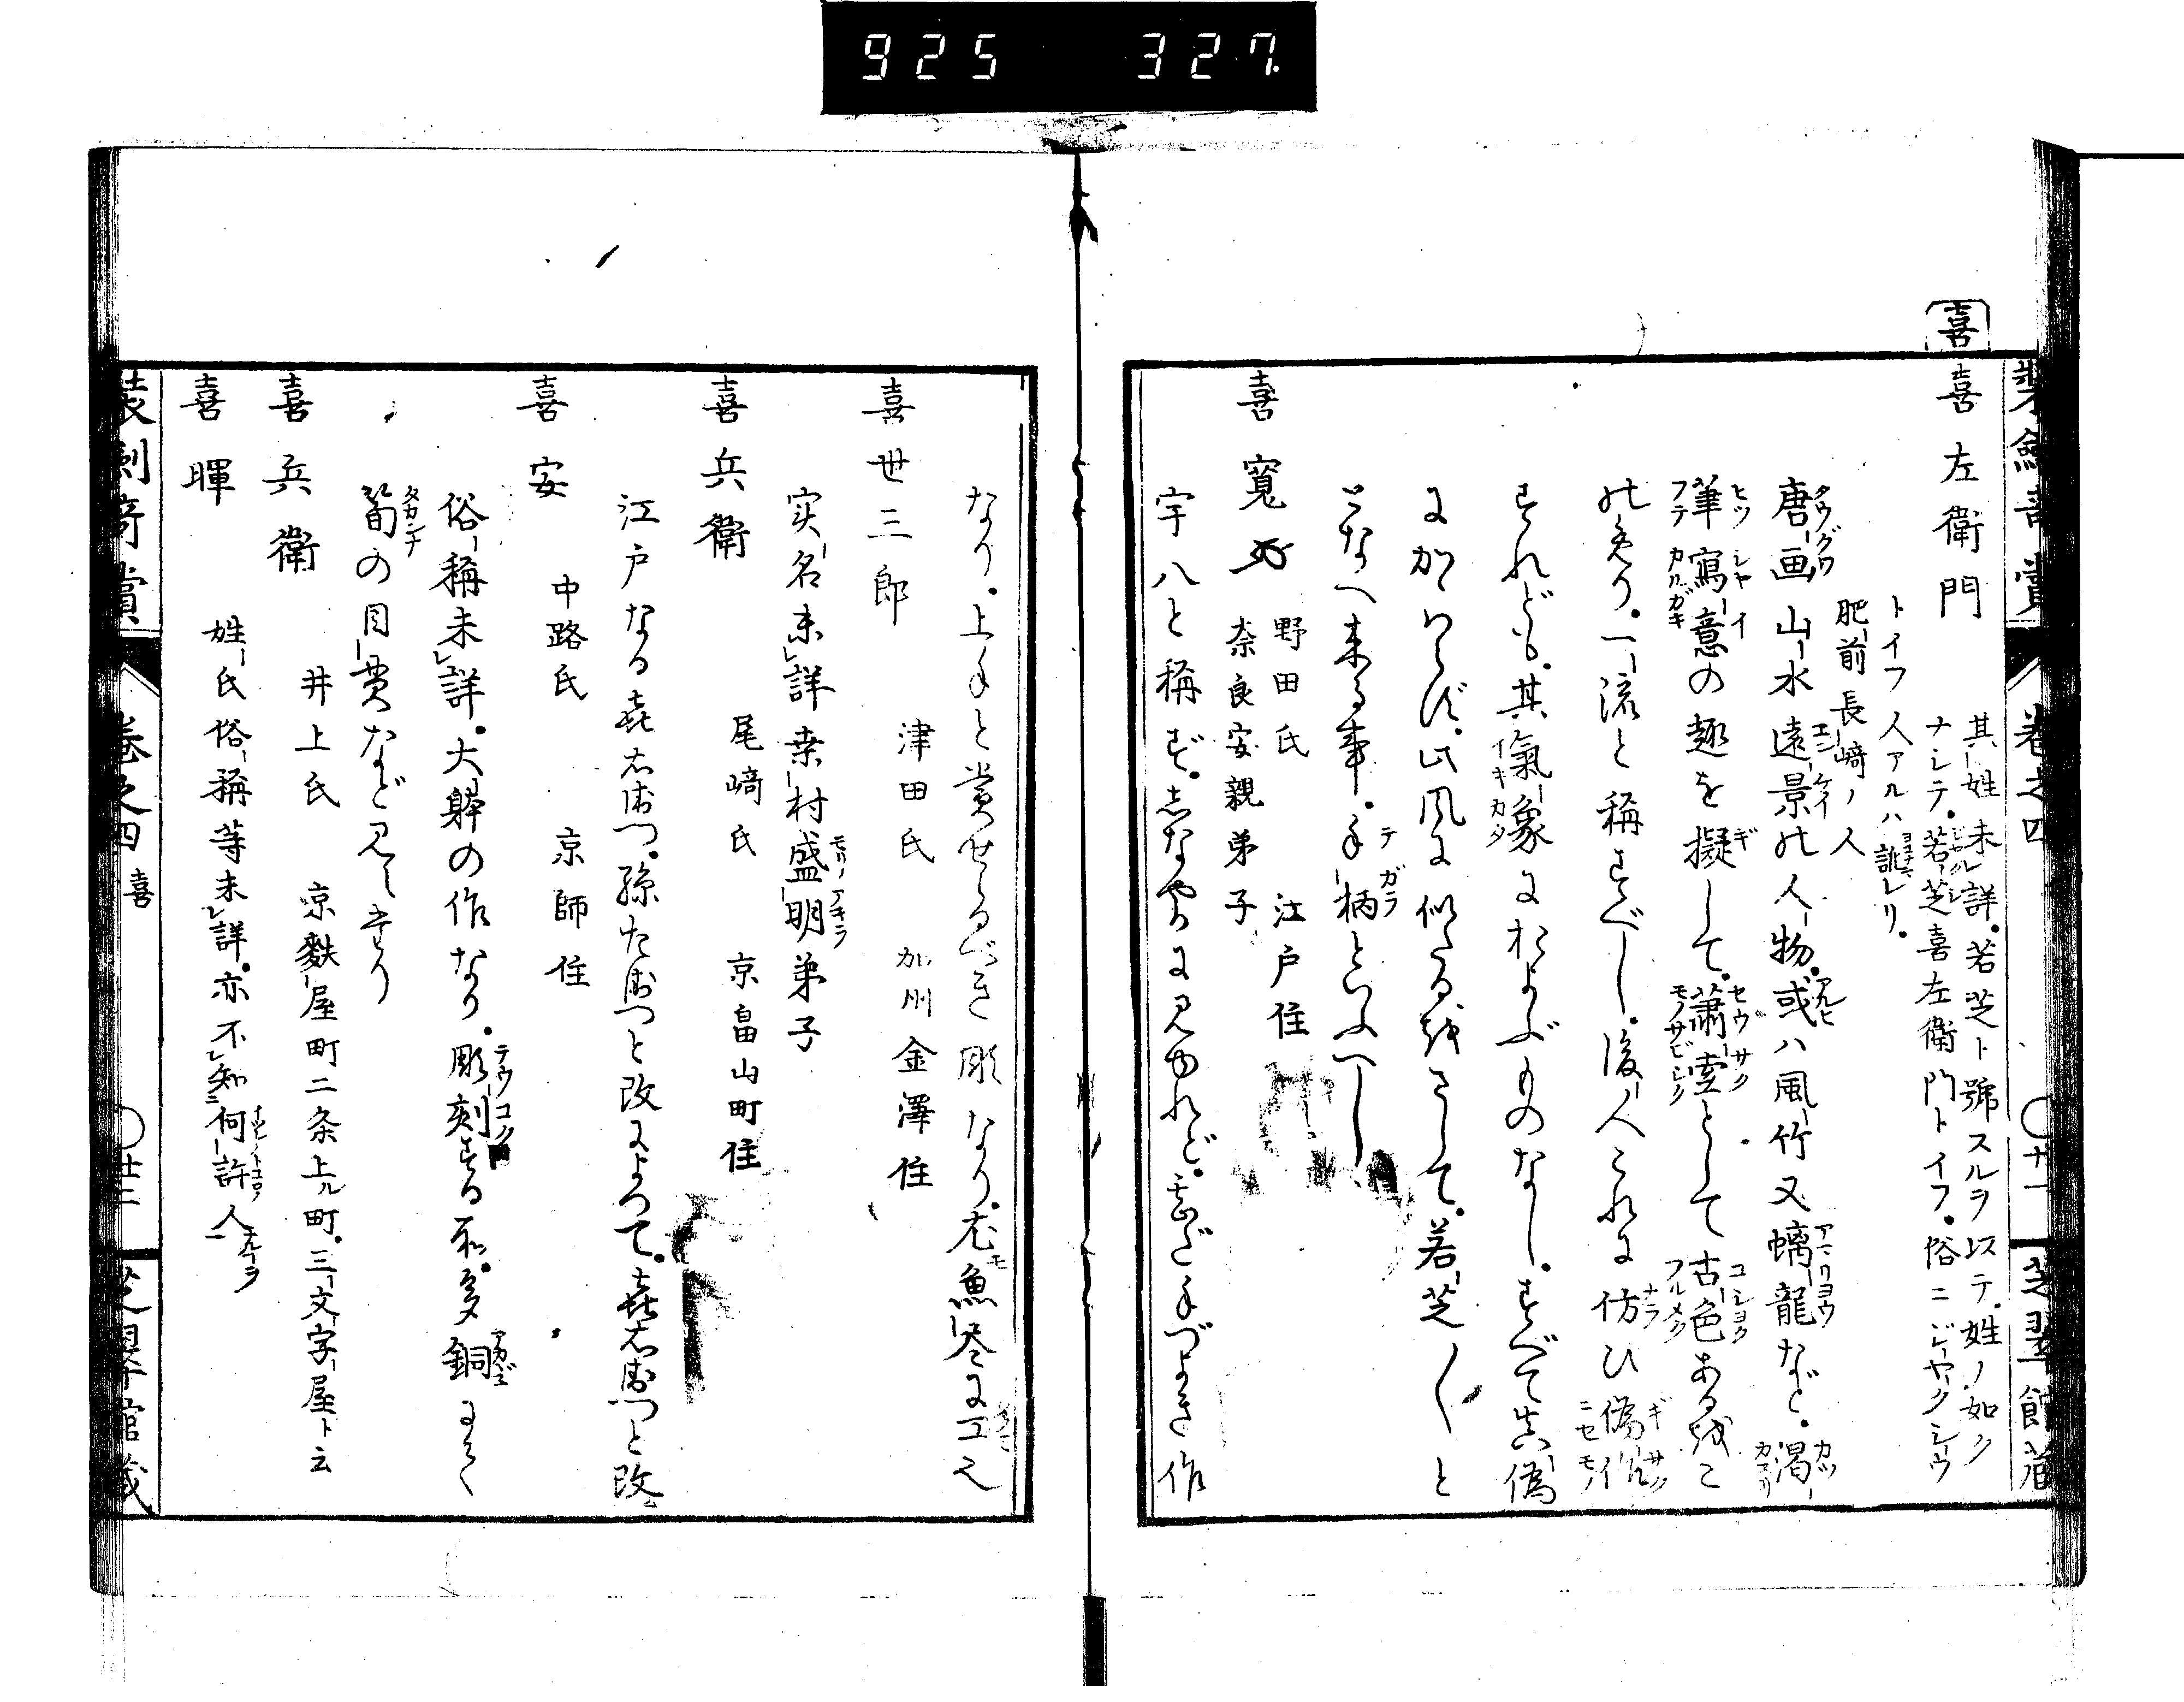 925 327
装劍奇賞
卷之四
廿一
芝翠館藏
喜
喜左衛門
其姓未詳。若芝ト號スルヲ以テ。姓ノ如ク
ナシテ。若芝喜左衛門トイフ。俗ニジヤクシウ
トイフ人アルハ訛レリ。
肥前長﨑ノ人
唐画山水遠景の人物。或ハ風竹又螭龍など。渇
筆寫意の趣を擬して。蕭索として古色あるをこ
のめり。一流と称すべし。後人これに仿ひ偽作
すれども。其氣象におよぶものなし。すべて真偽
にかゝはらず。此風に似たるをさして。若芝〳〵と
となへ来る事。手柄といふへし
喜寛
野田氏 江戸住
奈良安親弟子
宇八と称す。しなやかに見ゆれど。甚だ手づよき作
なり。上手と賞せらるべき彫なり。尤魚尽に工也
喜世三郎 津田氏 加州金澤住
実名未詳桒村盛明弟子
喜兵衛 尾﨑氏 京畠山町住
江戸なる喜左衛门。孫左衛门と改によつて。喜左衛门と改
喜安 中路氏 京師住
俗稱未詳。大躰の作なり。彫刻する所。多銅にて
筍の目貫など見えたり
喜兵衛 井上氏 京麩屋町二条上ル町。三文字屋ト云
喜暉 姓氏俗稱等未詳。亦不知何許人
装劍奇賞
卷之四
喜
廿二
芝翠館藏